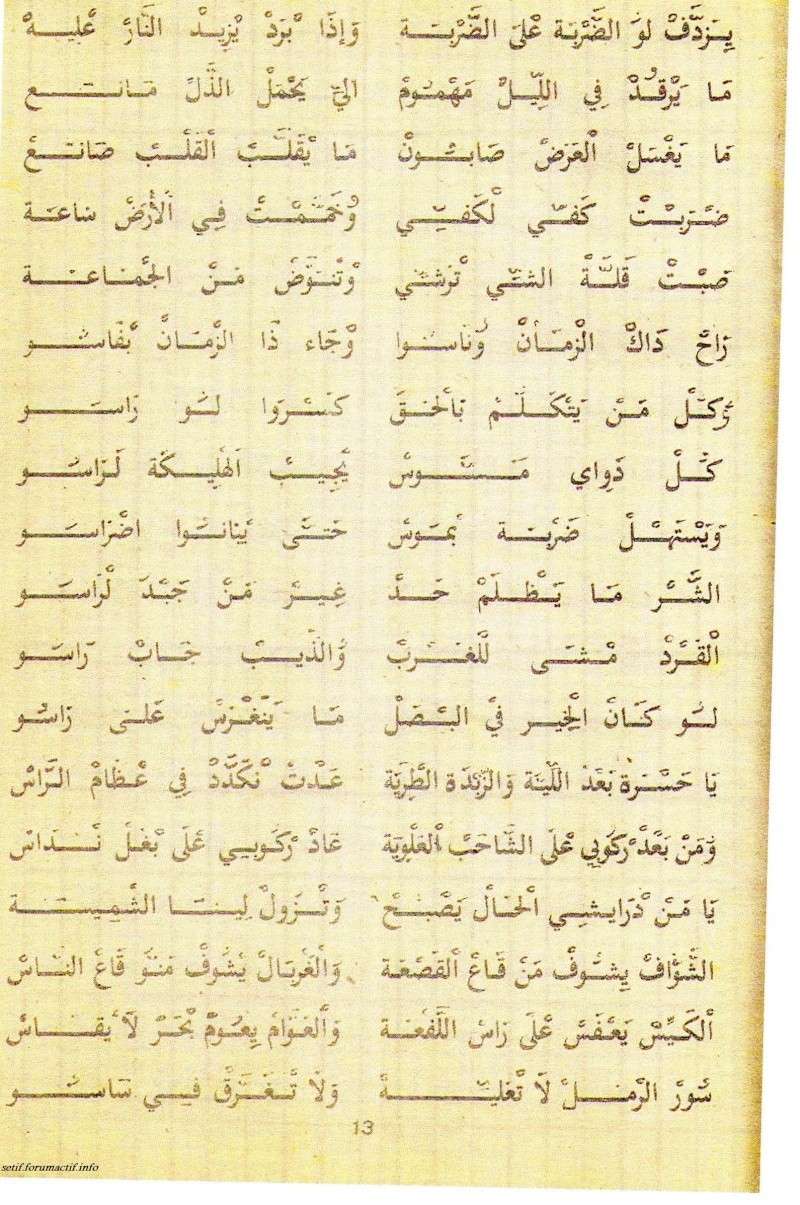 يِزَدَّفْ لَوْ الضَّرْبَة عْلَى الضَّرْبَة وَإِذَا بْرَدْ يْزِيدْ النَّارْ عْلِيهْ
مَا يَرْقُدْ فِي اللِّيلْ مَهْمُومْ الِيّ يَحْمَلْ الذَّلْ مَانَع
مَا يَغْسَلْ الْعَرْضْ صَابُونْ مَا يْقَلَّبْ الْقَلْبْ صَانَعْ
ضْرَبْتْ كَفِّي لْكَفِّي وْخَمَّمْتْ فِي الْأَرْضْ سَاعَة
صَبْتْ قَلَّةْ الشِّي تْرَشِّي وْتْنَوَّضْ مَنْ الجْمَاعَة
رَاحْ ذَاكْ الْزمَانْ وْنَاسُوا وْجَاء ذَا الزْمَانْ بْفَاسُو
وْكَلّْ مَنْ يَتْكَلَّمْ بَالْحَقَ كَسْرَوا لُو رَاسَو
كَلّْ دَوايْ مَسَّوسْ يْجِيبْ الهْلِيكَة لَرَاسُو
وَيَسْتَهَلْ ضَرْبَة بْمَوسْ حَتَّى يْبَانُوا اضْرَاسَو
الشَّرْ مَا يَظْلَمْ حَدْ غِيرْ مَنْ جَبْدَ لْرَاسَو
الْقَرْدْ مْشَى لَلْغَرْبْ وُالذِّيبْ جَابْ رَاسَو
لُو كَانْ الْخِير فِي الْبَصَلْ مَا يَنْغْرَسْ عَلَى رَاسُو
يَا حَسْرَة بَعْدْ اللِّيَّنَة وَالزَّبْدَة الطَّرِيَّة عَدْتْ نْكَدَّدْ فِي عْظَامْ الرَّاسْ
وْمَنْ بَعْدْ رْكَوبِي عْلَى الشَّاحَبْ الْعَلْوِيَة عَادْ رْكَوبِي عْلَى بْغَلْ نَدَاسْ
يَا مَنْ دْرَا يشِي الْحَالْ يَصْبَحْ وَتْزَولْ لِيتَا الشْمِيتَة
الشَّوَّافْ يشُوفْ مَنْ قَاعْ الْقَصْعَة وَالْغَرْبَالْ يْشُوفْ مَنُّو قَاعْ النَّاسْ
الْكَيِّسْ يَعْفَسْ عْلَى رَاسْ اللَّفْعَة وَالْعَوَّامْ يِعُومْ بْحَرْ لَا يقَاسْ
سُورْ الرْمَلْ لَا تْعَلِّيهْ وَلَا تْغَرَّقْ فِي سَاسُو
13
setif.forumactif.info